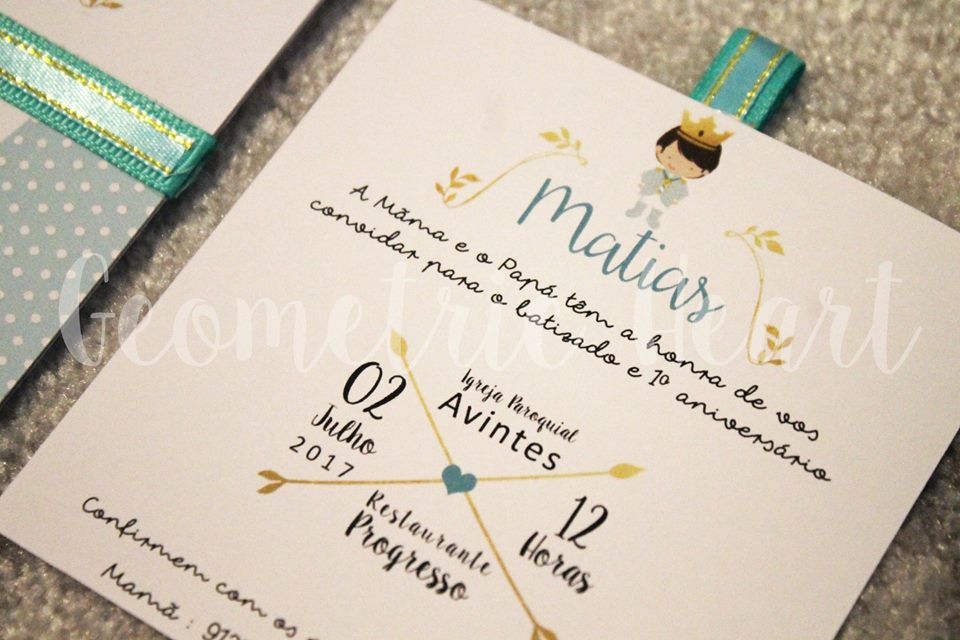 Matias
A Mãma e o Papá têm a honra de vos
convidar para o batizado e 1º aniversário
02
Julho
2017
Igreja Paroquial
Avintes
Restaurante
Progresso
12
Horas
Confirmem com os
Mamã : 912
Geometric Heart